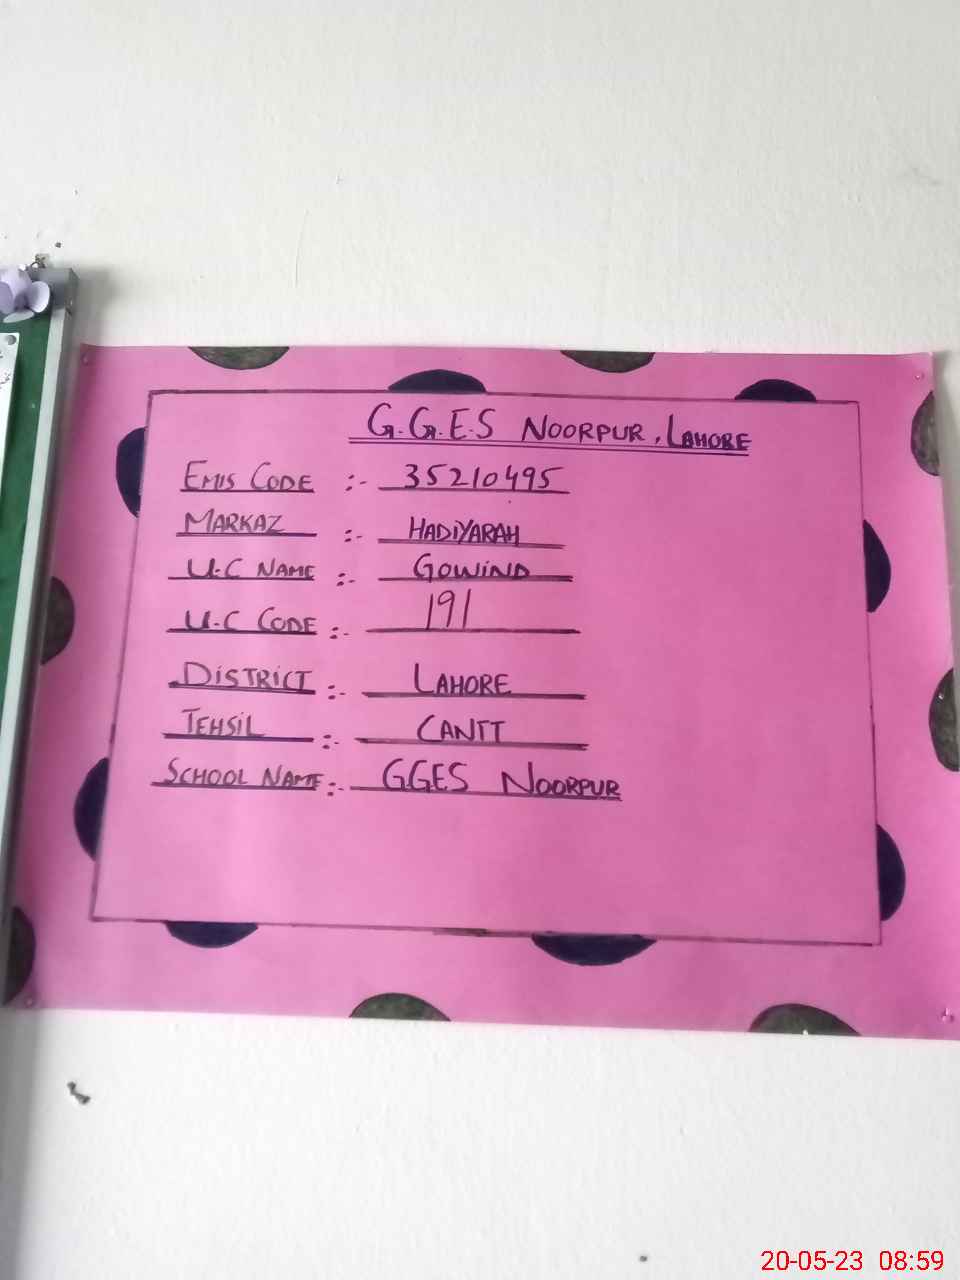 G.G.E.S NOORPUR, LAHORE
EMIS CODE :- 35210495
MARKAZ :- HADIYARAH
U.C NAME :- GOWIND
U.C CODE :- 191
DISTRICT :- LAHORE
TEHSIL :- CANTT
SCHOOL NAME :- GGES NOORPUR
20-05-23 08:59